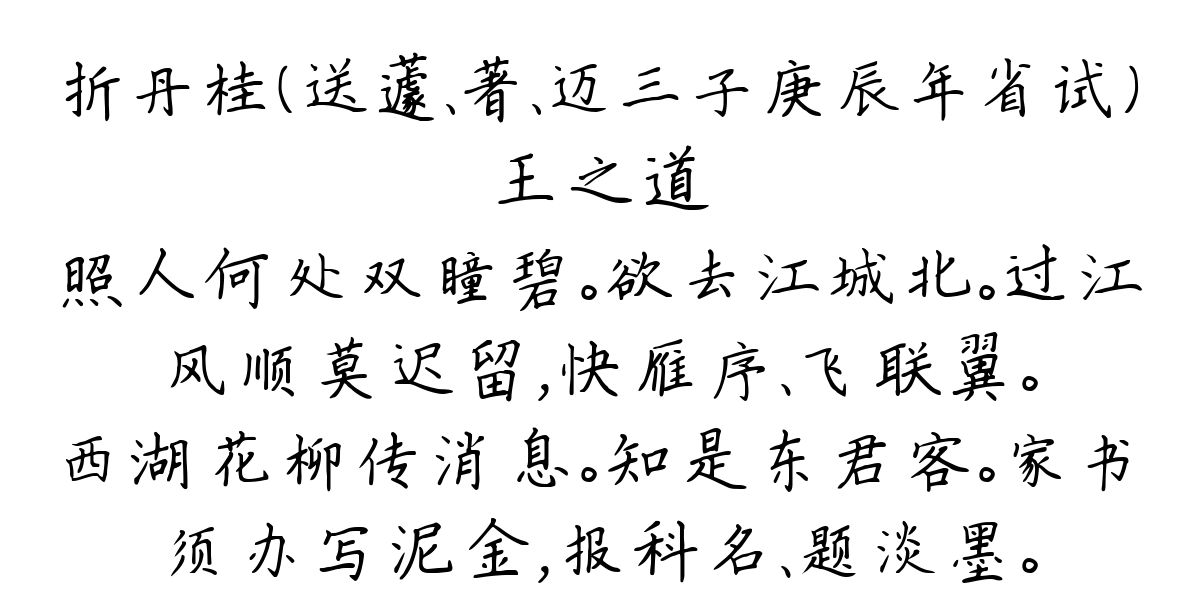 折丹桂(送蘧、著、迈三子庚辰年省试)
王之道
照人何处双瞳碧。欲去江城北。过江
风顺莫迟留,快雁序、飞联翼。
西湖花柳传消息。知是东君客。家书
须办写泥金,报科名、题淡墨。